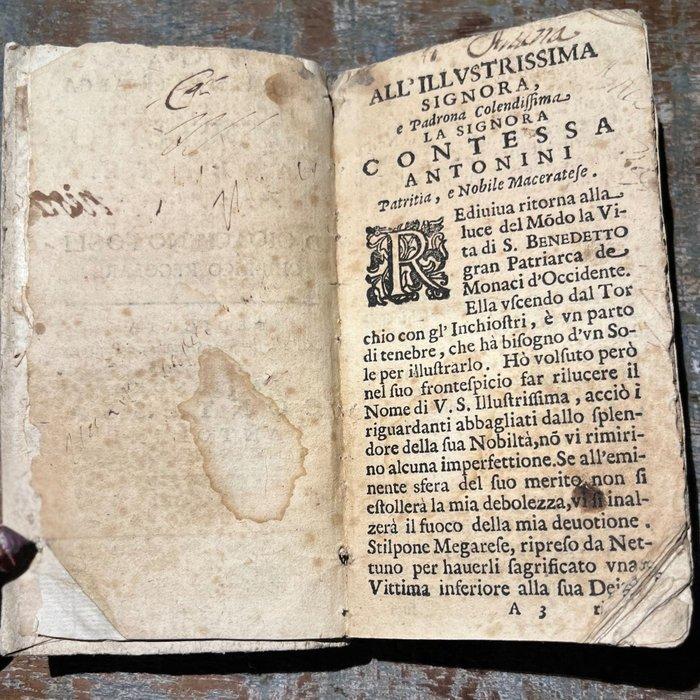 ALL' ILLVSTRISSIMA
SIGNORA,
e Padrona Colendiſſima
LA SIGNORA
CONTESSA
ANTONINI
Patritia, e Nobile Macerateſe.
REdiuiua ritorna alla
luce del Mõdo la Vi-
ta di S. BENEDETTO
gran Patriarca de
Monaci d'Occidente.
Ella vſcendo dal Tor
chio con gl' Inchioſtri, è vn parto
di tenebre, che hà biſogno d'vn So-
le per illuſtrarlo. Hò volſuto però
nel ſuo fronteſpicio far rilucere il
Nome di V. S. Illuſtriſſima, acciò i
riguardanti abbagliati dallo ſplen-
dore della ſua Nobiltà, nõ vi rimiri-
no alcuna imperfettione. Se all'emi-
nente sfera del ſuo merito non ſi
eſtollerà la mia debolezza, vi ſi inal-
zerà il fuoco della mia deuotione.
Stilpone Megareſe, ripreſo da Net-
tuno per hauerli ſagrificato vna
Vittima inferiore alla ſua Dei
A 3 r